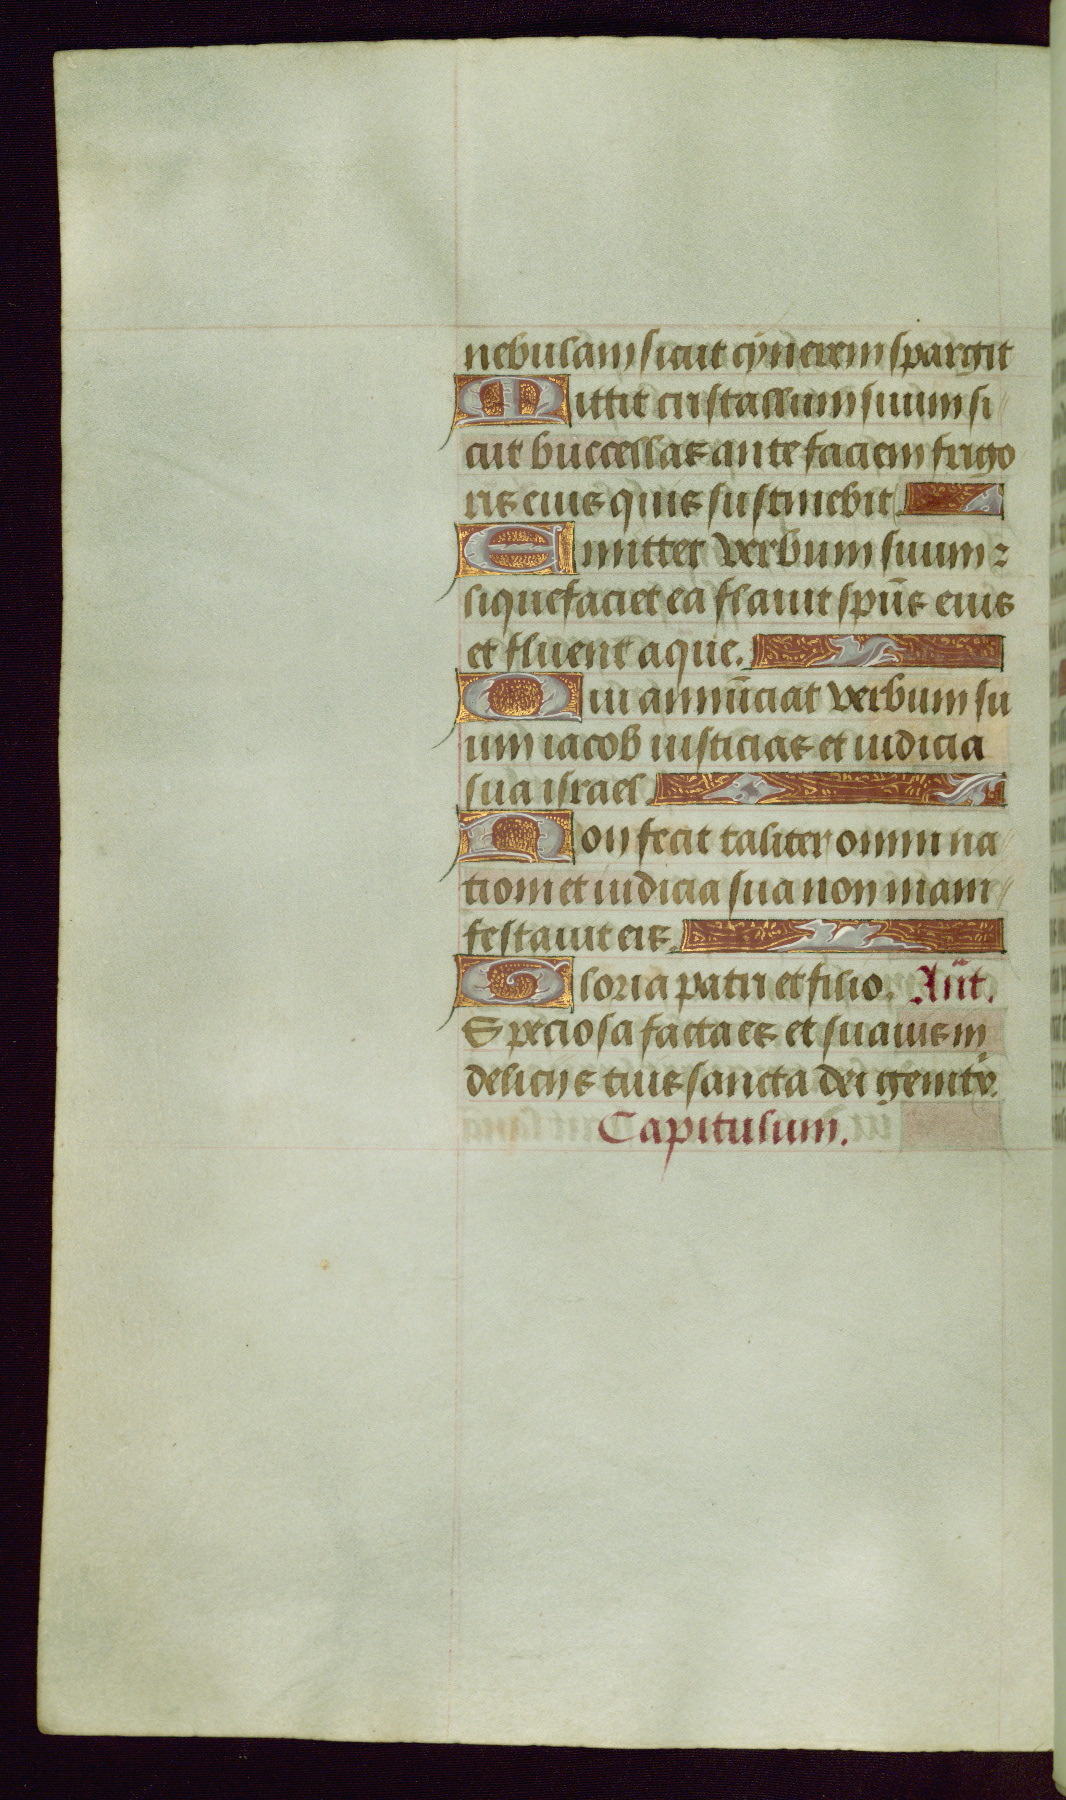 nebulam sicut cynerem spargit
Mittit cristallum suum si
cut buccellas ante faciem frigo
ris eius quis sustinebit.
Emittet verbum suum ⁊
liquefaciet ea flavit spūs eius
et fluent aque.
Qui annūciat verbum su
um iacob iusticias et iudicia
sua israel.
Non fecit taliter omni na
tioni et iudicia sua non mani
festavit eis.
Gloria patri et filio. Ant̄.
Speciosa facta es et suavis in
delicijs tuis sancta dei genitx̄.
Capitulum.